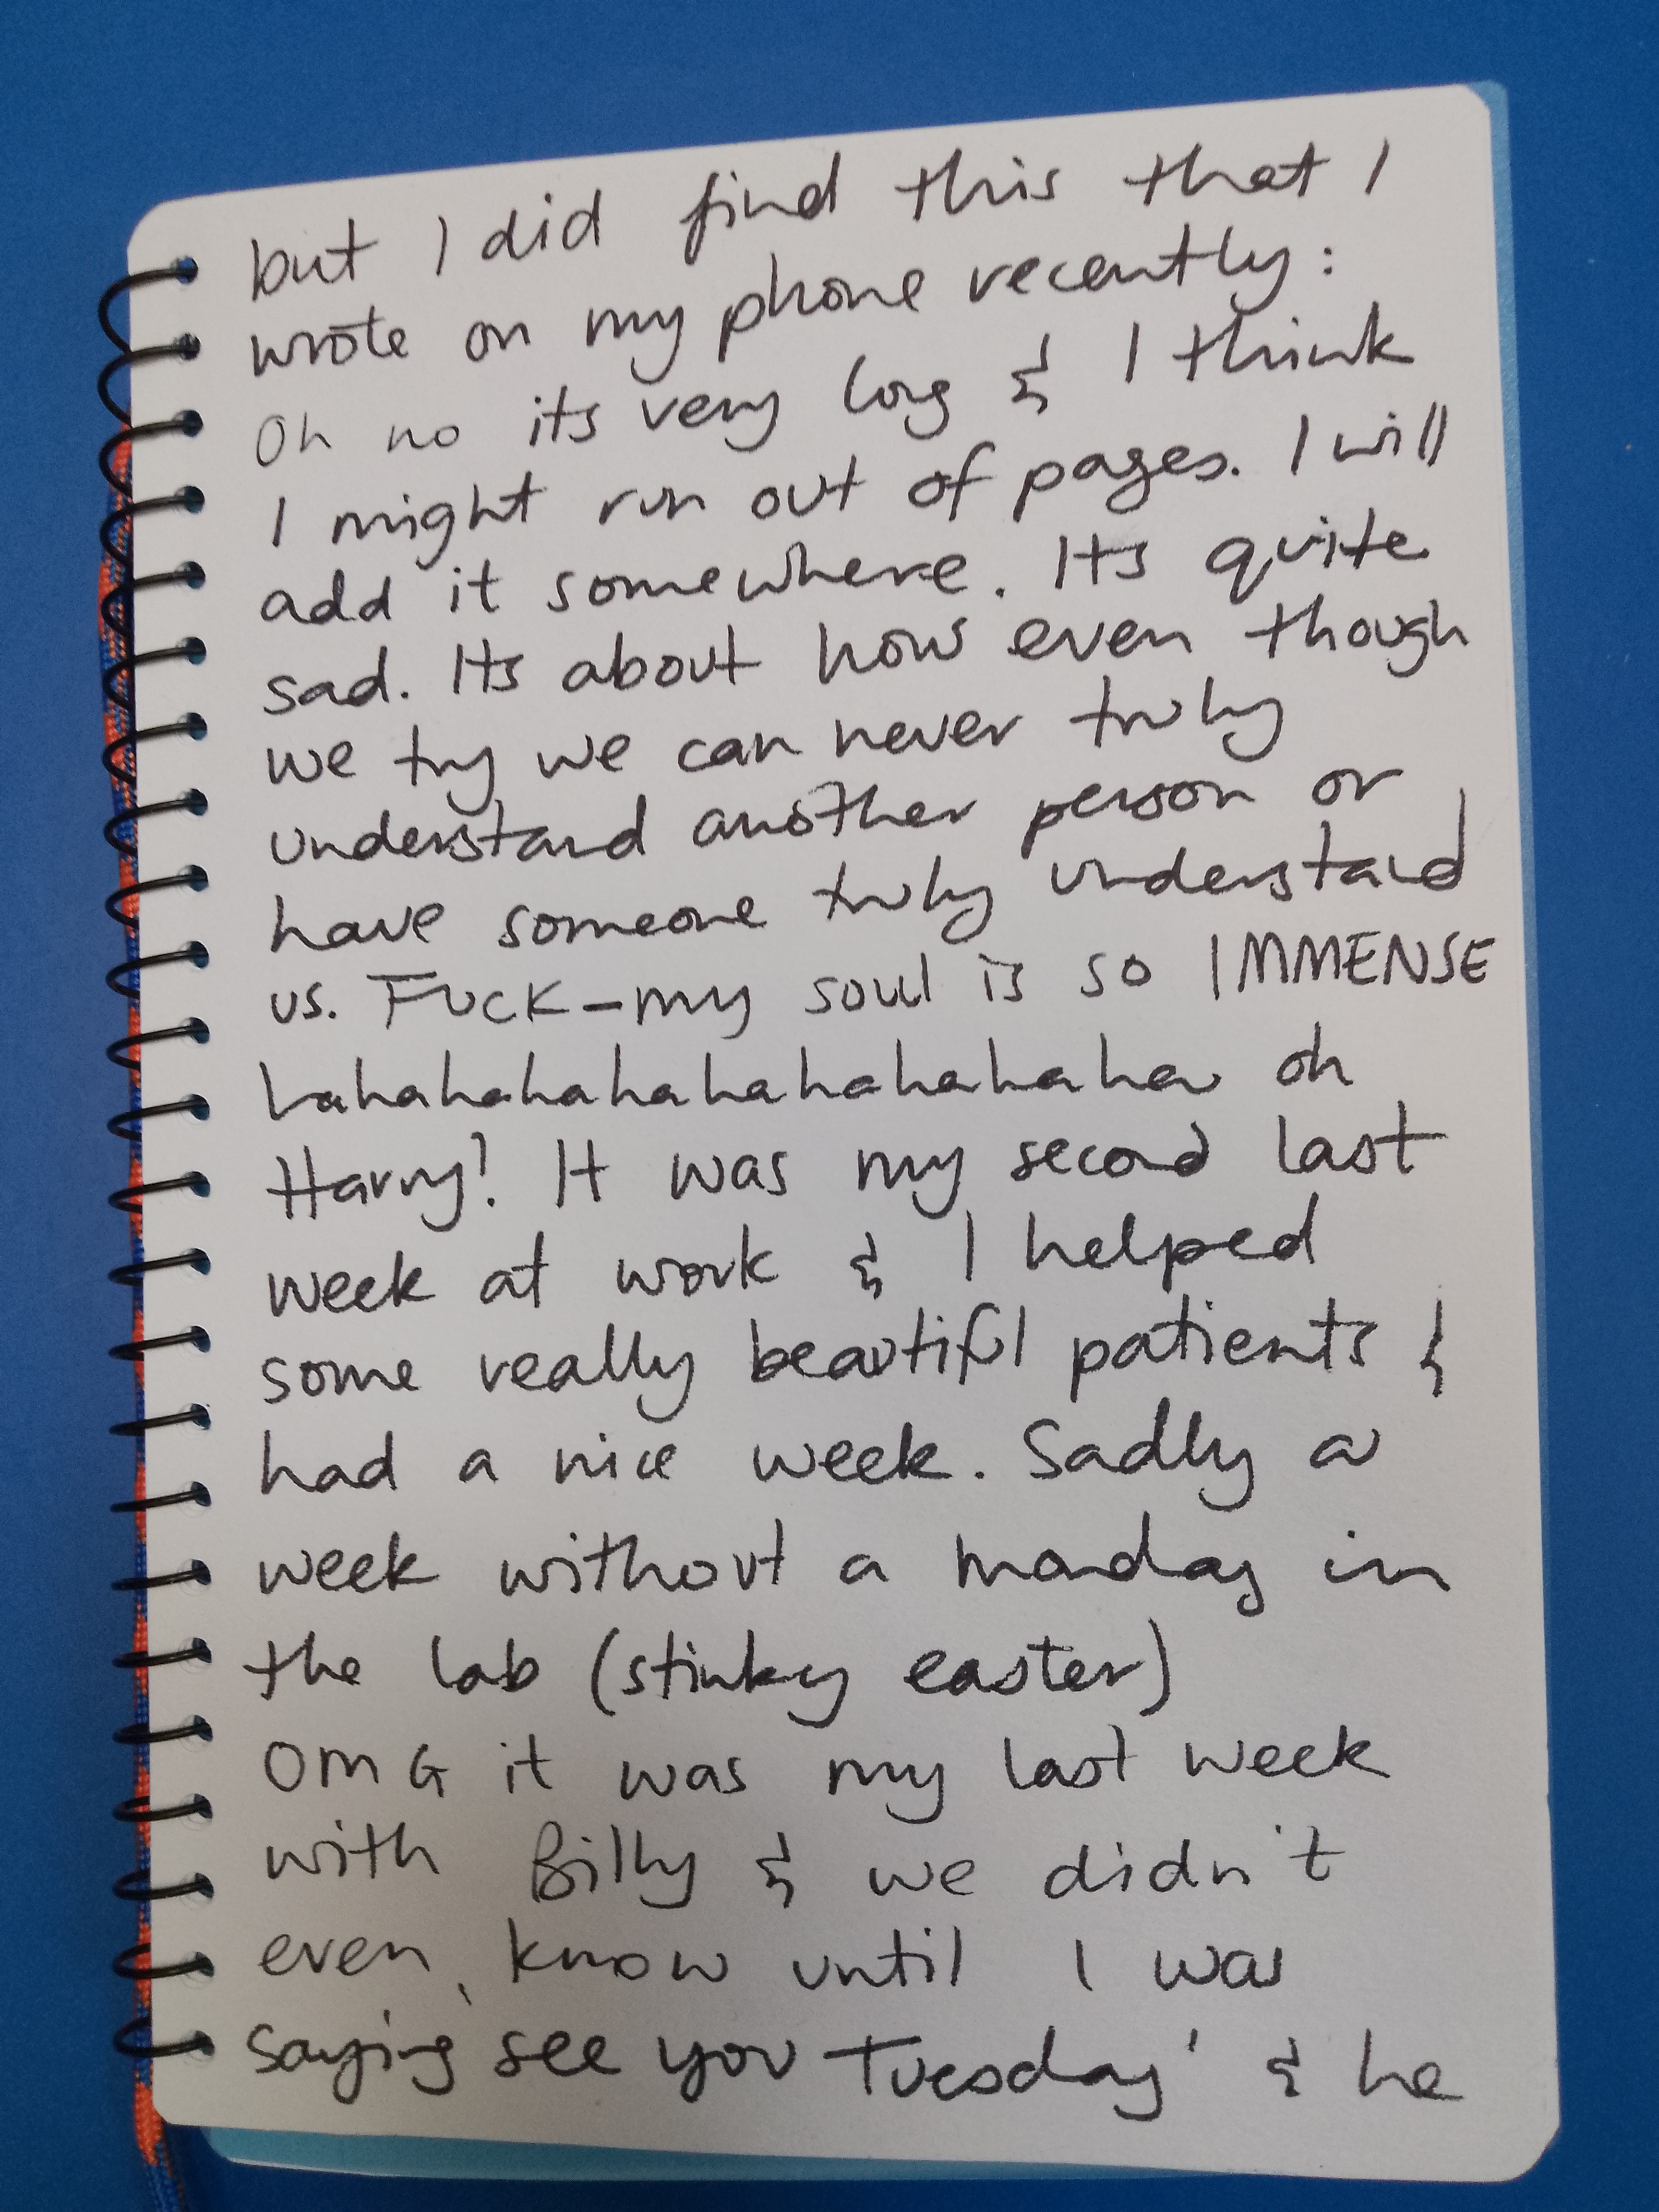 but I did find this that I
wrote on my phone recently:
Oh no its very long & I think
I might run out of pages. I will
add it somewhere. Its quite
sad. Its about how even though
we try we can never truly
understand another person or
have someone truly understand
us. FUCK - my soul is so IMMENSE
hahahahahahahahahaha oh
Harry! It was my second last
week at work & I helped
some really beautiful patients &
had a nice week. Sadly a
week without a monday in
the lab (stinky easter)
OMG it was my last week
with Billy & we didn't
even know until I was
saying 'see you Tuesday' & he